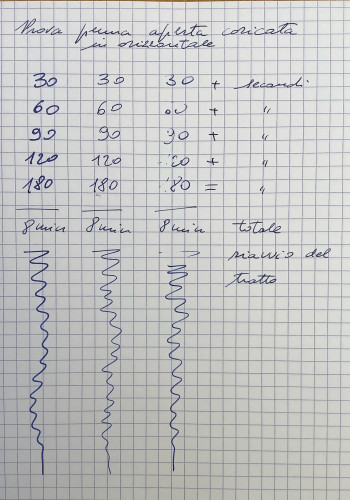 Prova penna aperta coricata
in orizzontale
30 30 30 + secondi
60 60 60 + "
90 90 90 + "
120 120 120 + "
180 180 180 = "
8 min 8 min 8 min totale
riavvio del
tratto